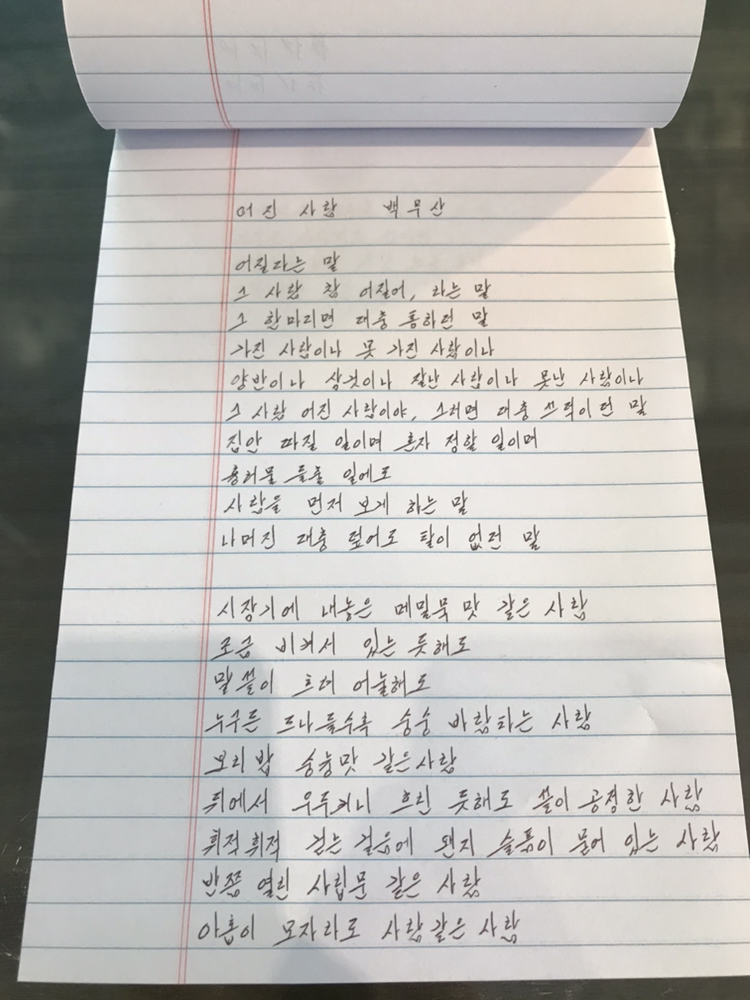 어진 사람 백무산
어질다는 말
그 사람 참 어질어, 라는 말
그 한마디면 대충 통하던 말
가진 사람이나 못 가진 사람이나
양반이나 상것이나 잘난 사람이나 못난 사람이나
그 사람 어진 사람이야, 그러면 대충 끄덕이던 말
집안 따질 일이며 혼자 정할 일이며
흉허물 들출 일에도
사람을 먼저 보게 하는 말
나머진 대충 덮어도 탈이 없던 말
시장기에 내놓은 메밀묵 맛 같은 사람
조금 비켜서 있는 듯해도
말 끝이 흐려 어눌해도
누구든 드나들수록 숭숭 바람타는 사람
보리밥 숭늉맛 같은사람
뒤에서 우두커니 흐린 듯해도 끝이 공정한 사람
휘적휘적 걷는 걸음에 왠지 슬픔이 묻어 있는 사람
반쯤 열린 사립문 같은 사람
아홉이 모자라도 사람같은 사람